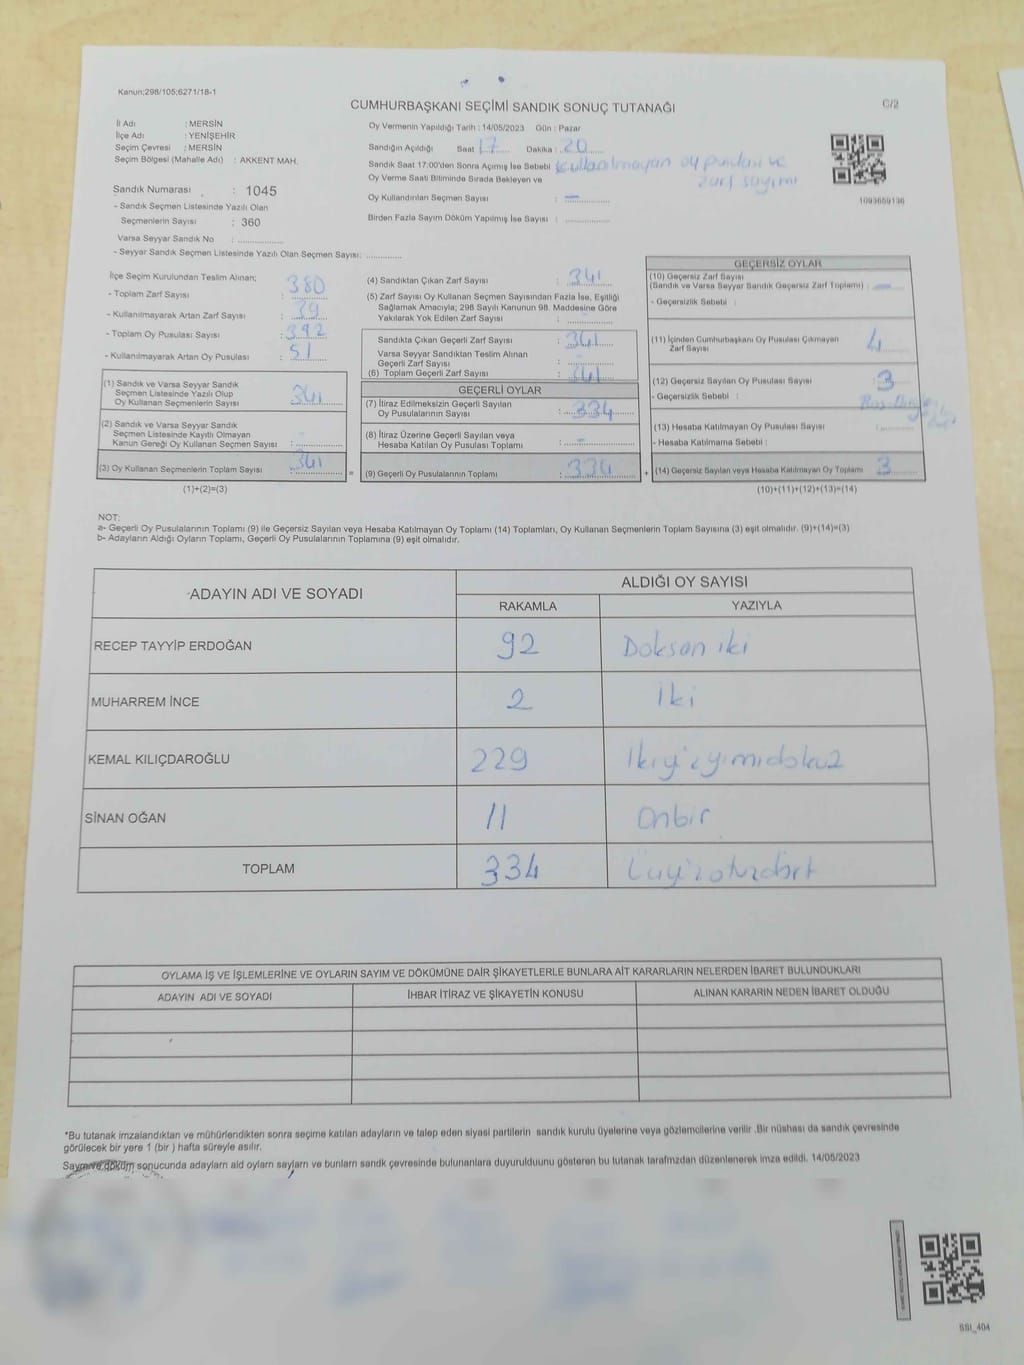 Kanun;298/105;6271/18-1
CUMHURBAŞKANI SEÇİMİ SANDIK SONUÇ TUTANAĞI
C/2
İl Adı : MERSİN
İlçe Adı : YENİŞEHİR
Seçim Çevresi : MERSİN
Seçim Bölgesi (Mahalle Adı) : AKKENT MAH.
Sandık Numarası : 1045
- Sandık Seçmen Listesinde Yazılı Olan
Seçmenlerin Sayısı : 360
Varsa Seyyar Sandık No : ..............
- Seyyar Sandık Seçmen Listesinde Yazılı Olan Seçmen Sayısı: ..............
Oy Vermenin Yapıldığı Tarih : 14/05/2023 Gün : Pazar
Sandığın Açıldığı Saat 17 Dakika : 20
Sandık Saat 17:00'den Sonra Açımış İse Sebebi Kullanılmayan oy pusulası ve
zarf sayımı
Oy Verme Saati Bitiminde Sırada Bekleyen ve
Oy Kullandırılan Seçmen Sayısı : —
Birden Fazla Sayım Döküm Yapılmış İse Sayısı : ..............
1093659136
İlçe Seçim Kurulundan Teslim Alınan;
- Toplam Zarf Sayısı : 380
- Kullanılmayarak Artan Zarf Sayısı : 39
- Toplam Oy Pusulası Sayısı : 392
- Kullanılmayarak Artan Oy Pusulası : 51
(1) Sandık ve Varsa Seyyar Sandık
Seçmen Listesinde Yazılı Olup
Oy Kullanan Seçmenlerin Sayısı : 341
(2) Sandık ve Varsa Seyyar Sandık
Seçmen Listesinde Kayıtlı Olmayan
Kanun Gereği Oy Kullanan Seçmen Sayısı : -
(3) Oy Kullanan Seçmenlerin Toplam Sayısı : 341
(1)+(2)=(3)
(4) Sandıktan Çıkan Zarf Sayısı : 341
(5) Zarf Sayısı Oy Kullanan Seçmen Sayısından Fazla İse, Eşitliği
Sağlamak Amacıyla; 298 Sayılı Kanunun 98. Maddesine Göre
Yakılarak Yok Edilen Zarf Sayısı : ..............
Sandıkta Çıkan Geçerli Zarf Sayısı : 341
Varsa Seyyar Sandıktan Teslim Alınan
Geçerli Zarf Sayısı : -
(6) Toplam Geçerli Zarf Sayısı : 341
GEÇERLİ OYLAR
(7) İtiraz Edilmeksizin Geçerli Sayılan
Oy Pusulalarının Sayısı : 334
(8) İtiraz Üzerine Geçerli Sayılan veya
Hesaba Katılan Oy Pusulası Toplamı : -
= (9) Geçerli Oy Pusulalarının Toplamı : 334 +
GEÇERSİZ OYLAR
(10) Geçersiz Zarf Sayısı
(Sandık ve Varsa Seyyar Sandık Geçersiz Zarf Toplamı) : —
- Geçersizlik Sebebi :
(11) İçinden Cumhurbaşkanı Oy Pusulası Çıkmayan
Zarf Sayısı : 4
(12) Geçersiz Sayılan Oy Pusulası Sayısı : 3
- Geçersizlik Sebebi :
(13) Hesaba Katılmayan Oy Pusulası Sayısı : ..............
- Hesaba Katılmama Sebebi :
(14) Geçersiz Sayılan veya Hesaba Katılmayan Oy Toplamı : 3
(10)+(11)+(12)+(13)=(14)
NOT:
a- Geçerli Oy Pusulalarının Toplamı (9) ile Geçersiz Sayılan veya Hesaba Katılmayan Oy Toplamı (14) Toplamları, Oy Kullanan Seçmenlerin Toplam Sayısına (3) eşit olmalıdır. (9)+(14)=(3)
b- Adayların Aldığı Oyların Toplamı, Geçerli Oy Pusulalarının Toplamına (9) eşit olmalıdır.
ADAYIN ADI VE SOYADI ALDIĞI OY SAYISI
RAKAMLA YAZIYLA
RECEP TAYYİP ERDOĞAN 92 Doksan iki
MUHARREM İNCE 2 İki
KEMAL KILIÇDAROĞLU 229 İkiyüzyirmidokuz
SİNAN OĞAN 11 Onbir
TOPLAM 334 Üçyüzotuzdört
OYLAMA İŞ VE İŞLEMLERİNE VE OYLARIN SAYIM VE DÖKÜMÜNE DAİR ŞİKAYETLERLE BUNLARA AİT KARARLARIN NELERDEN İBARET BULUNDUKLARI
ADAYIN ADI VE SOYADI İHBAR İTİRAZ VE ŞİKAYETİN KONUSU ALINAN KARARIN NEDEN İBARET OLDUĞU
*Bu tutanak imzalandıktan ve mühürlendikten sonra seçime katılan adayların ve talep eden siyasi partilerin sandık kurulu üyelerine veya gözlemcilerine verilir .Bir nüshası da sandık çevresinde
görülecek bir yere 1 (bir ) hafta süreyle asılır.
Sayım ve döküm sonucunda adayların ald oyların sayları ve bunlarn sandk çevresinde bulunanlara duyurulduunu gösteren bu tutanak tarafmzdan düzenlenerek imza edildi. 14/05/2023
SSI_404